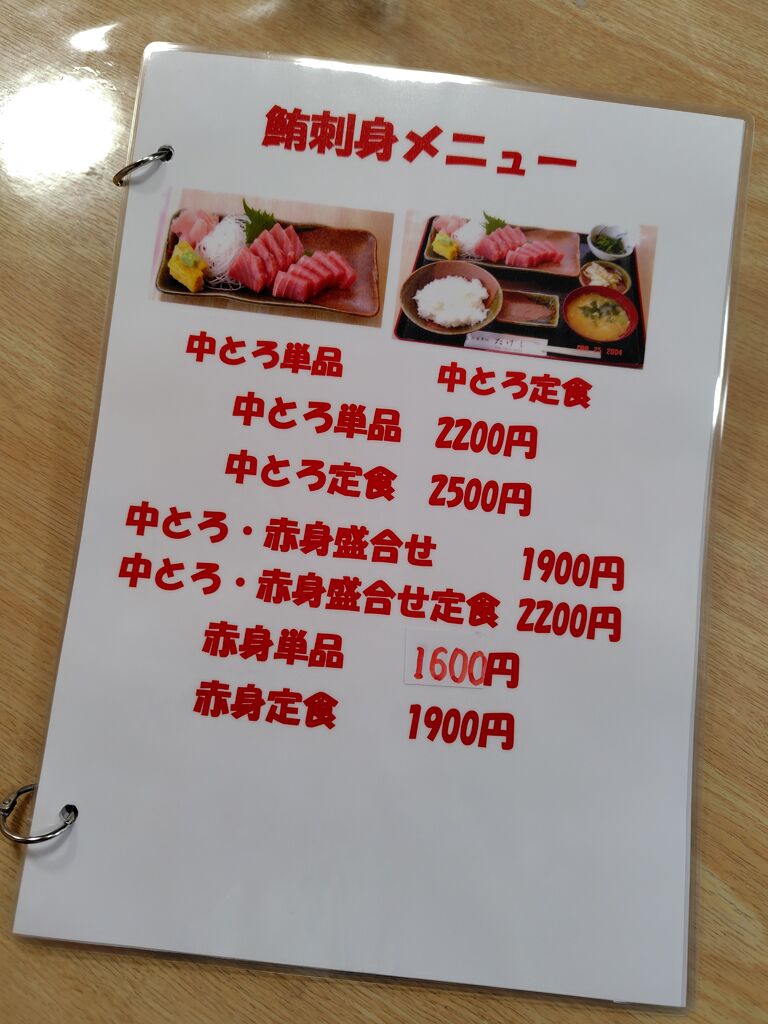 鮪刺身メニュー
たけし
25 2004
中とろ単品
中とろ定食
中とろ単品 2200円
中とろ定食 2500円
中とろ・赤身盛合せ 1900円
中とろ・赤身盛合せ定食 2200円
赤身単品 1600円
赤身定食 1900円